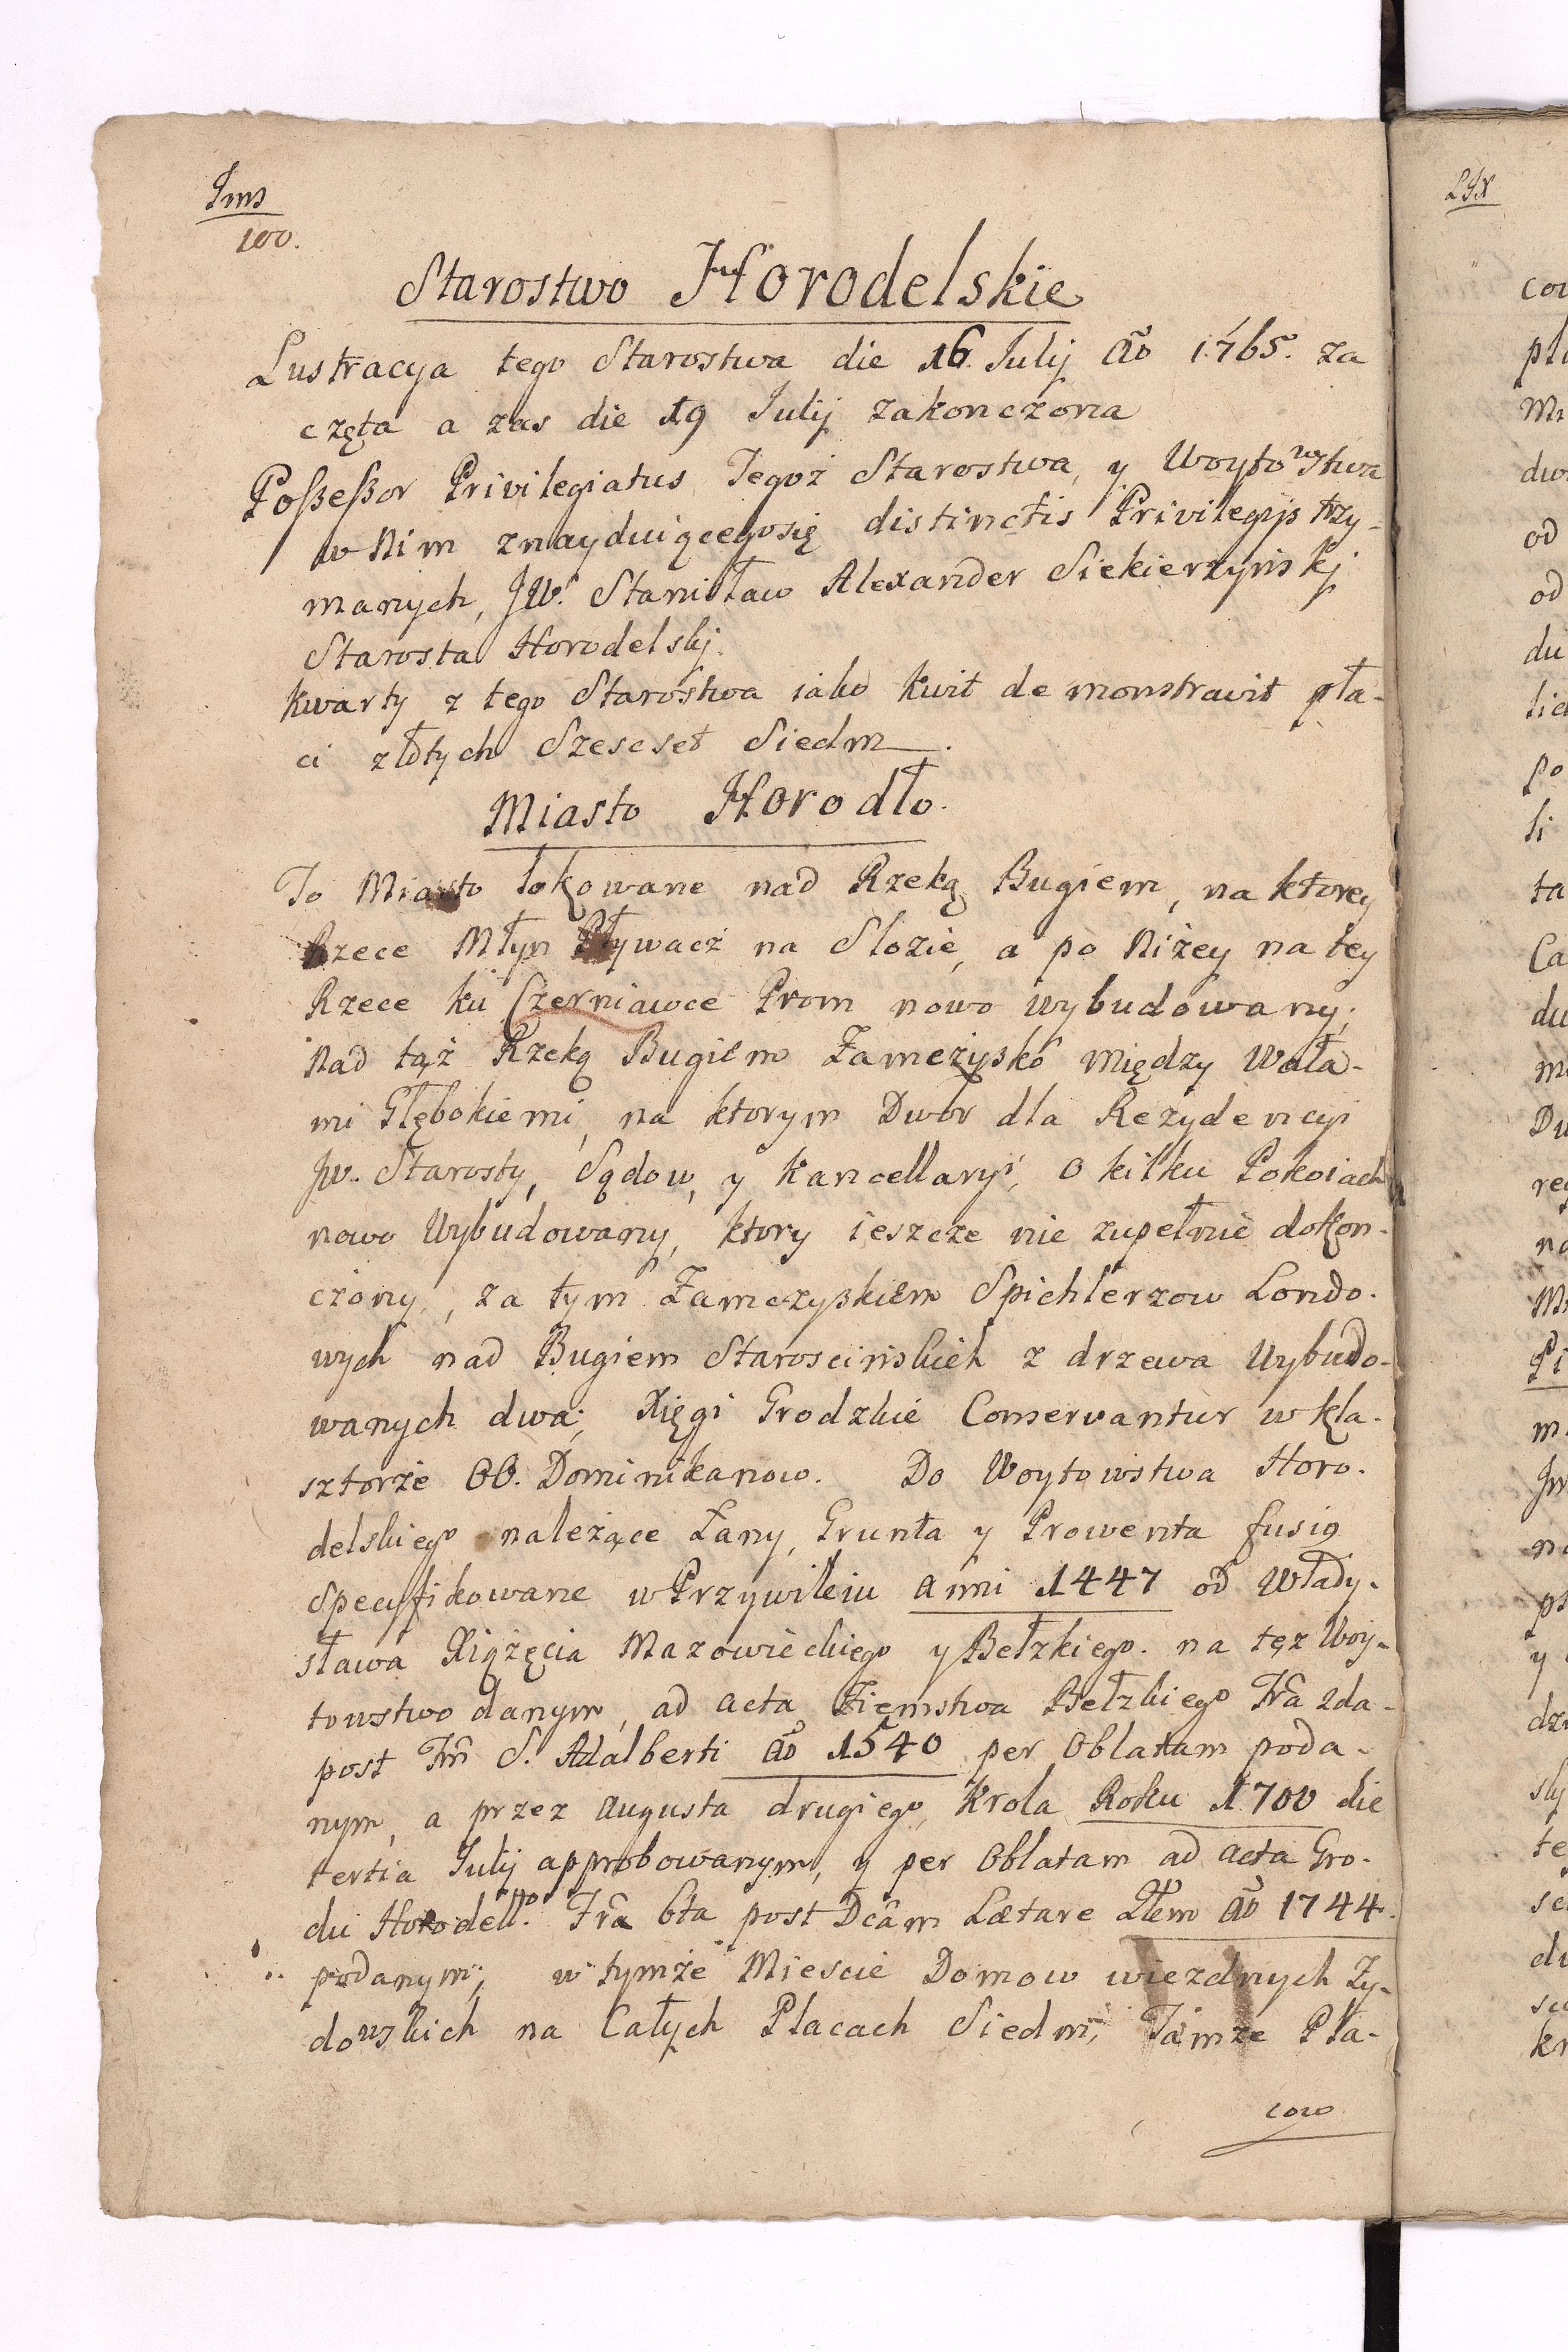 Ims
100.
Starostwo Horodelskie
Lustracya tego Starostwa die 16. Julij Aõ 1765. za
częta a zas die 19 Julij zakonczona
Poßeßor Privilegiatus Tegoż Starostwa, y Woytowstwa
w Nim znayduiącegosię distinctis Privilegijs trzy-
manych, JW. Stanisław Alexander Siekierzyńskj
Starosta Horodelskj.
kwarty z tego Starostwa iako kwit demonstravit pła-
ci złotych Szescset Siedm.
Miasto Horodło.
To Miasto lokowane nad Rzeką Bugiem, na ktorey
Rzece Młyn Pływacz na Slozie, a po Niżey na tey
Rzece ku Czerniawce Prom nowo wybudowany;
Nad tąż Rzeką Bugiem Zamczysko między Wała-
mi Głębokiemi, na ktorym Dwor dla Rezydencyi
Jw. Starosty, Sądow, y Kancellaryi, o kilku Pokoiach
nowo Wybudowany, ktory ieszcze nie zupełnie dokon-
czony, za tym Zamczyskiem Spichlerzow Londo-
wych nad Bugiem Starościńskich z drzewa Wybudo-
wanych dwa; Xięgi Grodzkie Conservantur w kla-
sztorże OO. Dominikanow. Do Woytowstwa Horo-
delskiego należące Łany, Grunta y Prowenta fusiq
Specyfikowane w Przywileiu Anni 1447 od Włady-
sława Xiążęcia Mazowieckiego y Bełzkiego. na tęz Woy-
towstwo danym, ad acta Ziemstwa Bełzkiego Fr̃a 2da
post Fm̃ S. Adalberti Aõ 1540 per Oblatam poda-
nym, a przez Augusta drugiego, Krola Roku 1700 die
tertia Julij approbowanym, y per Oblatam ad acta Gro-
du Horodell. Fr̃a 6ta post Dcãm Lætare Qlem Aõ 1744.
podanym; w tymże Miescie Domow wiezdnych Zy-
dowskich na Całych Placach Siedm; Tamze Pla-
cow
LIX